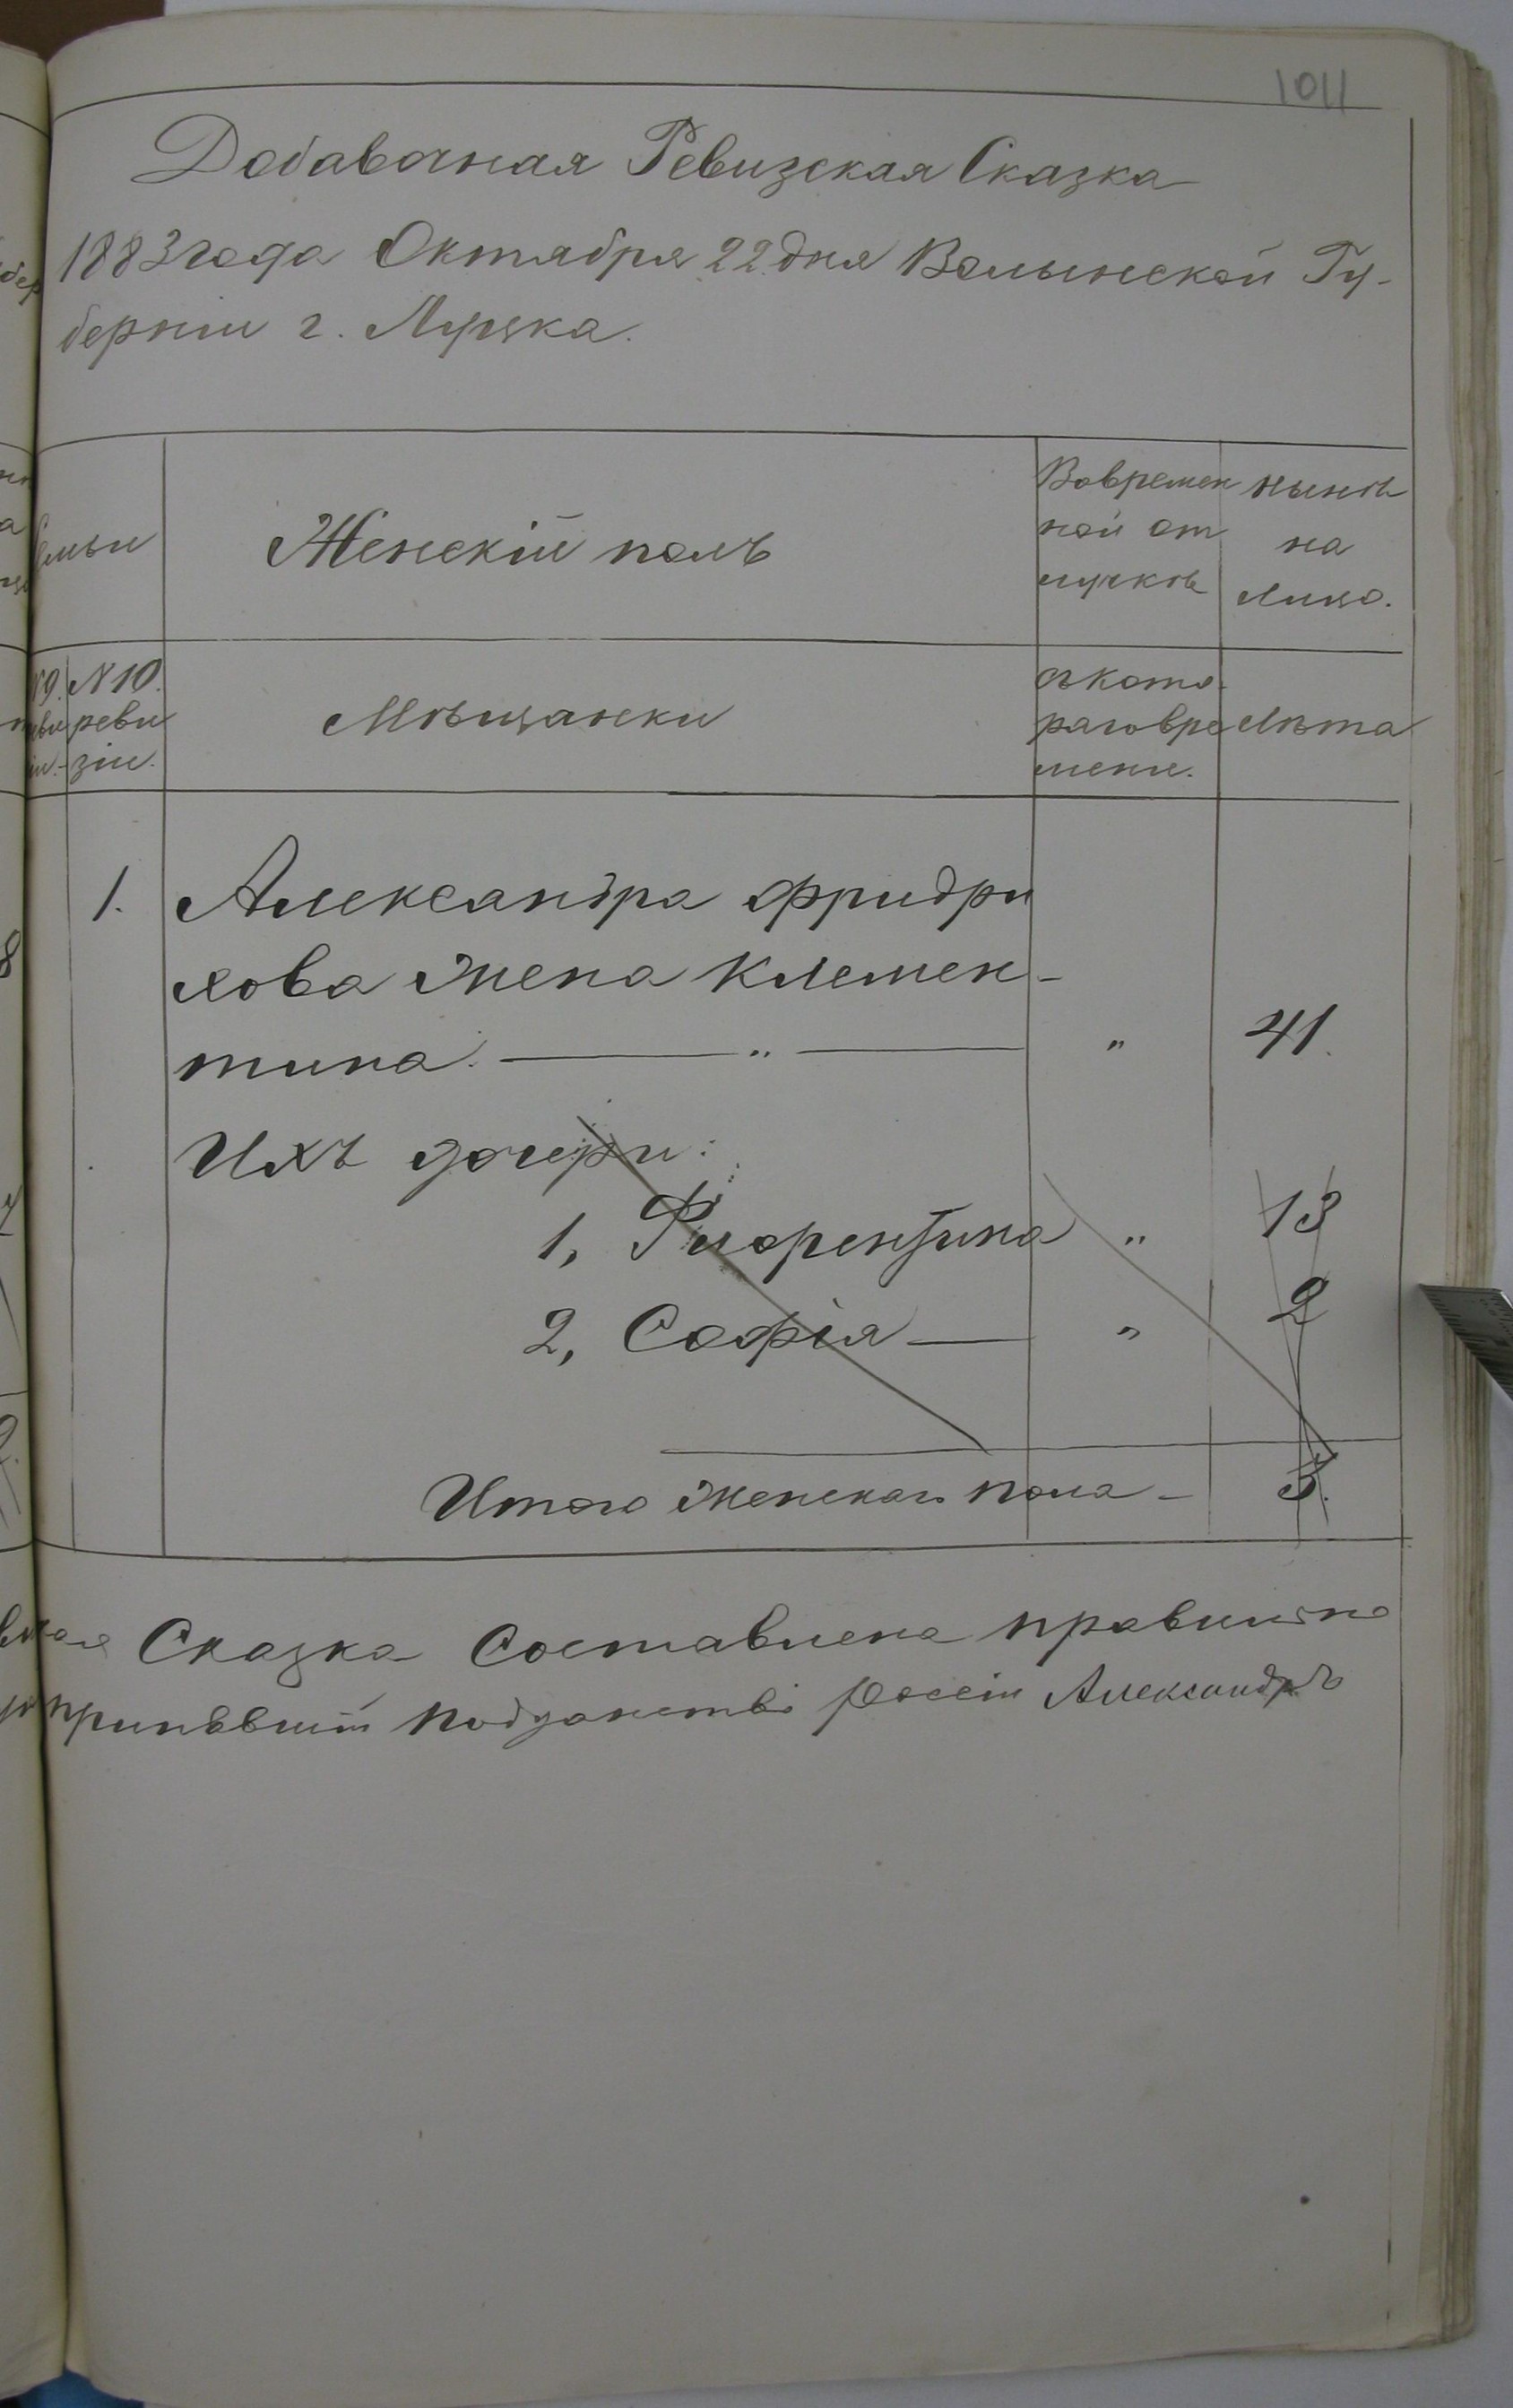 1011
Добавочная Ревизская Сказка
1883 года Октября 22 дня Волынской Гу-
берніи г. Луцка.
Женскій полъ
Вовремен
ной от
лучкѣ
нынѣ
на
лицо.
N 10.
реви
зіи.
Мѣщански
съкото-
раговре
мени.
Лѣта
1. Александра Фридри
хова жена Клемен-
тина. — " — " 41.
Ихъ дочери:
1, Флорентина " 13
2, Софія — " 2
Итого женскаго пола - 3.
Сказка Составлена правильно
принявшій подданство Россіи Александръ